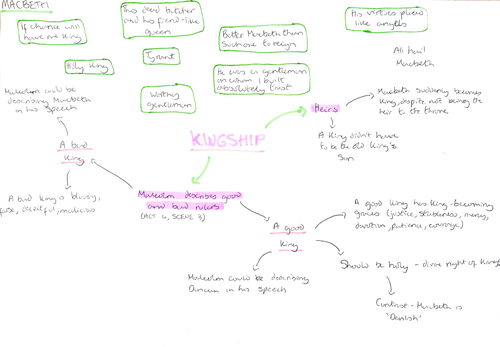 MACBETH
If chance will
have me King
This dead butcher
and his fiend-like
queen
Better Macbeth than
such one to reign
His virtues plead
like angels
Holy King
Tyrant
Worthy
gentleman
He was a gentleman
on whom I built
absolutely trust
All hail
Macbeth
Malcolm could be
describing Macbeth
in his speech
KINGSHIP
Heirs
Macbeth suddenly becomes
King, despite not being the
heir to the throne
A King didn't have
to be the old King's
Son
A bad
King
A bad king is bloody,
false, deceitful, malicious
Malcolm describes good
and bad rulers
(ACT 4, SCENE 3)
A good
King
A good king has king-becoming
graces (justice, stableness, mercy,
devotion, patience, courage)
Should be holy - divine right of Kings
Malcolm could be describing
Duncan in his speech
Contrast - Macbeth is
'Devilish'